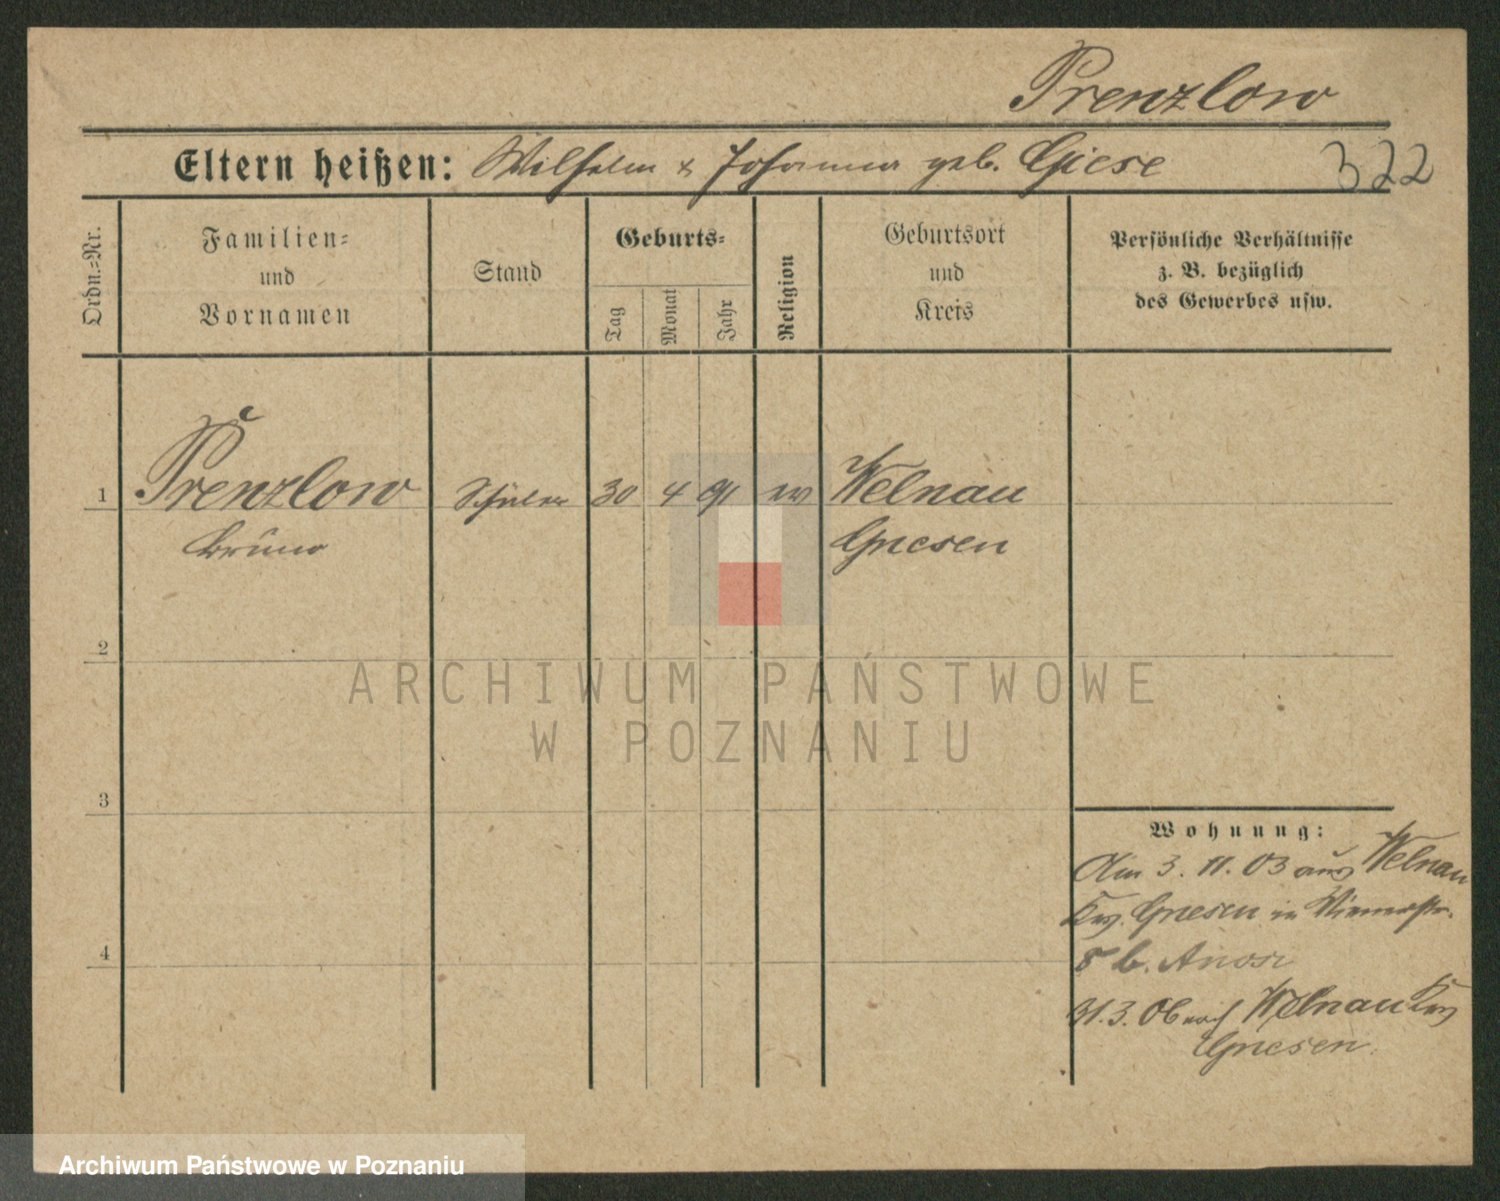 Prenzlow
Eltern heißen: Wilhelm & Johanna geb. Giese 322
Ordn.-Nr.
Familien-
und
Vornamen
Stand
Geburts-
Tag
Monat
Jahr
Religion
Geburtsort
und
Kreis
Persönliche Verhältnisse
z. B. bezüglich
des Gewerbes usw.
1 Prenzlow Schüler 30 4 91 ev Welnau
Bruno Gnesen
2
ARCHIWUM PAŃSTWOWE
W POZNANIU
3
Wohnung:
Am 3. 11. 03 aus Welnau
Krs. Gnesen in
8 b.
4
31.3. 06 nach Welnau Krs
Gnesen.
Archiwum Państwowe w Poznaniu